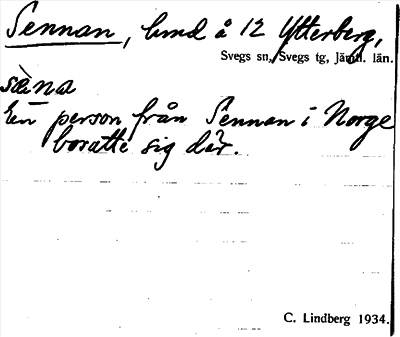 Sennan, hmd å 12 Ytterberg,
Svegs sn, Svegs tg, Jämtl. län.
sèna
En person från Sennan i Norge
bosatte sig där.
C. Lindberg 1934.